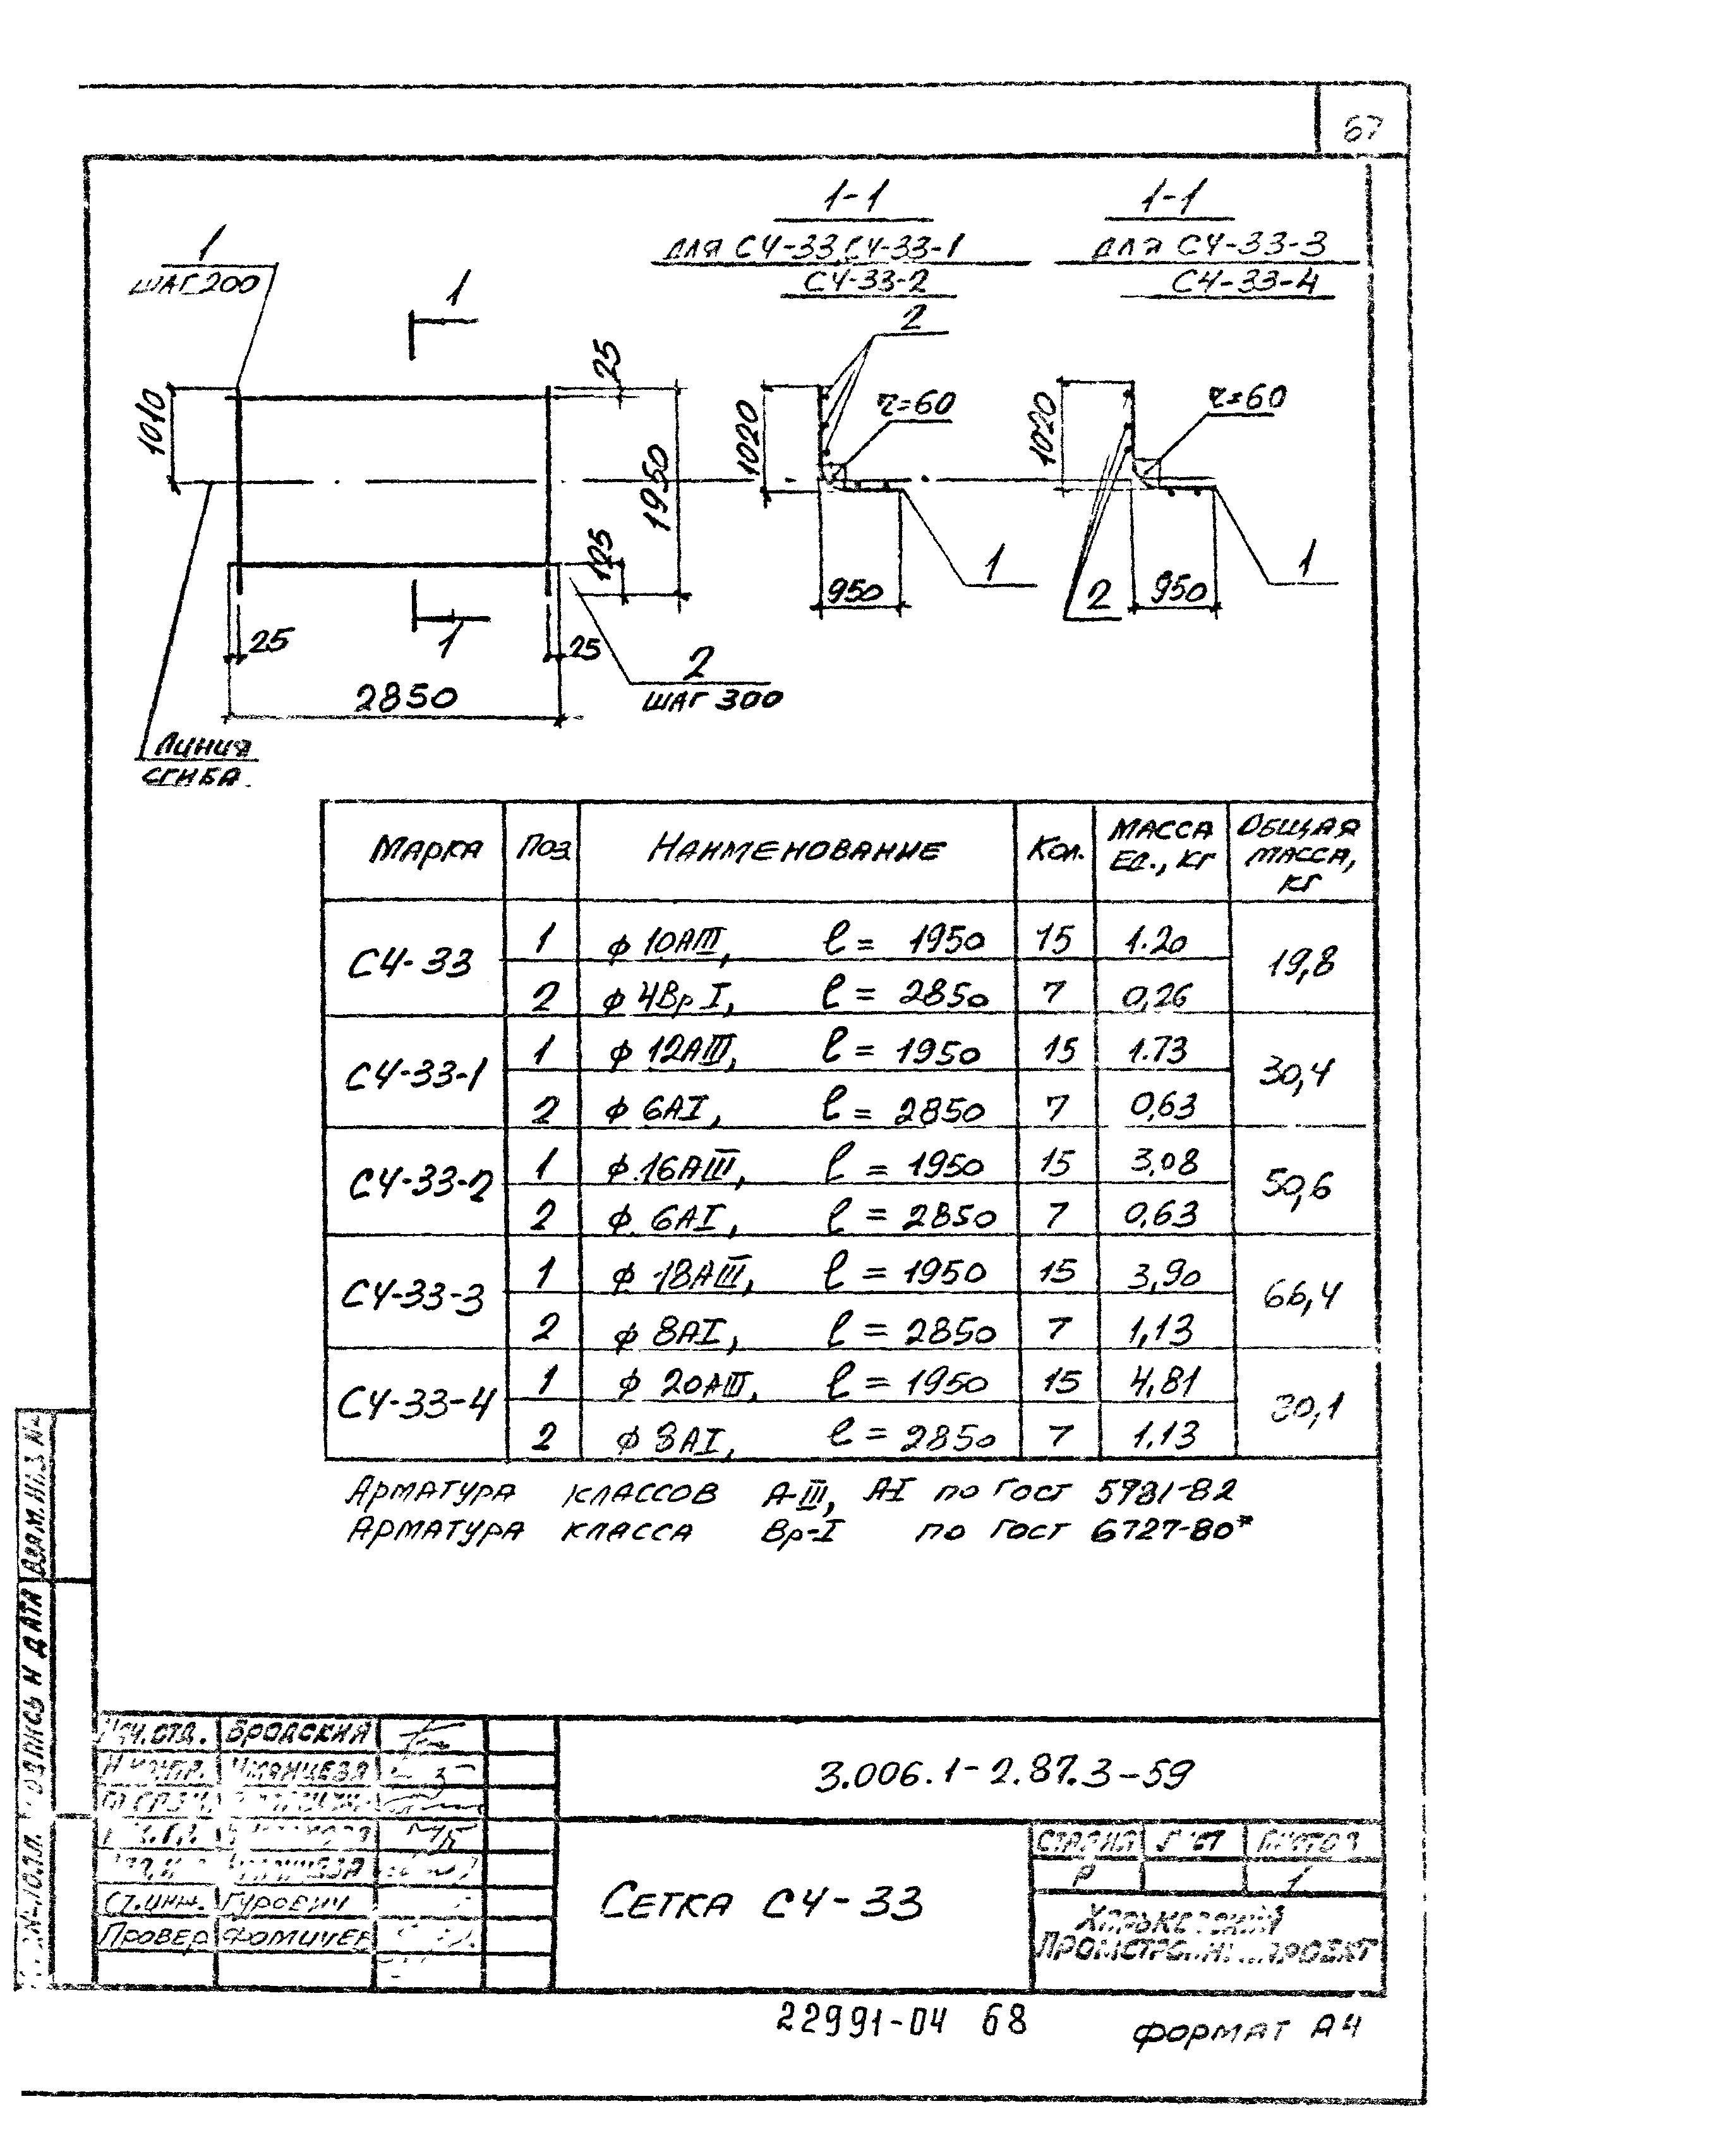 67
1-1
для С4-33, С4-33-1
С4-33-2
1-1
для С4-33-3
С4-33-4
1
шаг 200
1
2
25
1010
1950
125
1020
r=60
950
1
1020
r=60
2
950
1
25
1
25
2850
2
шаг 300
Линия
сгиба
Марка Поз. Наименование Кол. Масса ед., кг Общая масса, кг
С4-33 1 ф 10АIII, ℓ = 1950 15 1.20 19,8
2 ф 4Вр I, ℓ = 2850 7 0,26
С4-33-1 1 ф 12АIII, ℓ = 1950 15 1.73 30,4
2 ф 6АI, ℓ = 2850 7 0,63
С4-33-2 1 ф 16АIII, ℓ = 1950 15 3,08 50,6
2 ф 6АI, ℓ = 2850 7 0.63
С4-33-3 1 ф 18АIII, ℓ = 1950 15 3,90 66,4
2 ф 8АI, ℓ = 2850 7 1,13
С4-33-4 1 ф 20АIII, ℓ = 1950 15 4,81
2 ф 8АI, ℓ = 2850 7 1.13
Арматура классов А-III, А-I по ГОСТ 5781-82
Арматура класса Вр-I по ГОСТ 6727-80*
Взам. инв. №
Подпись и дата
Нач. отд. Бродский
Ст. инж. Гурович
Провер. Фомичев
3.006.1-2.87.3-59
Сетка С4-33
Стадия Лист Листов
Р 1
Харьковский
Промстройниипроект
22991-04 68
Формат А4